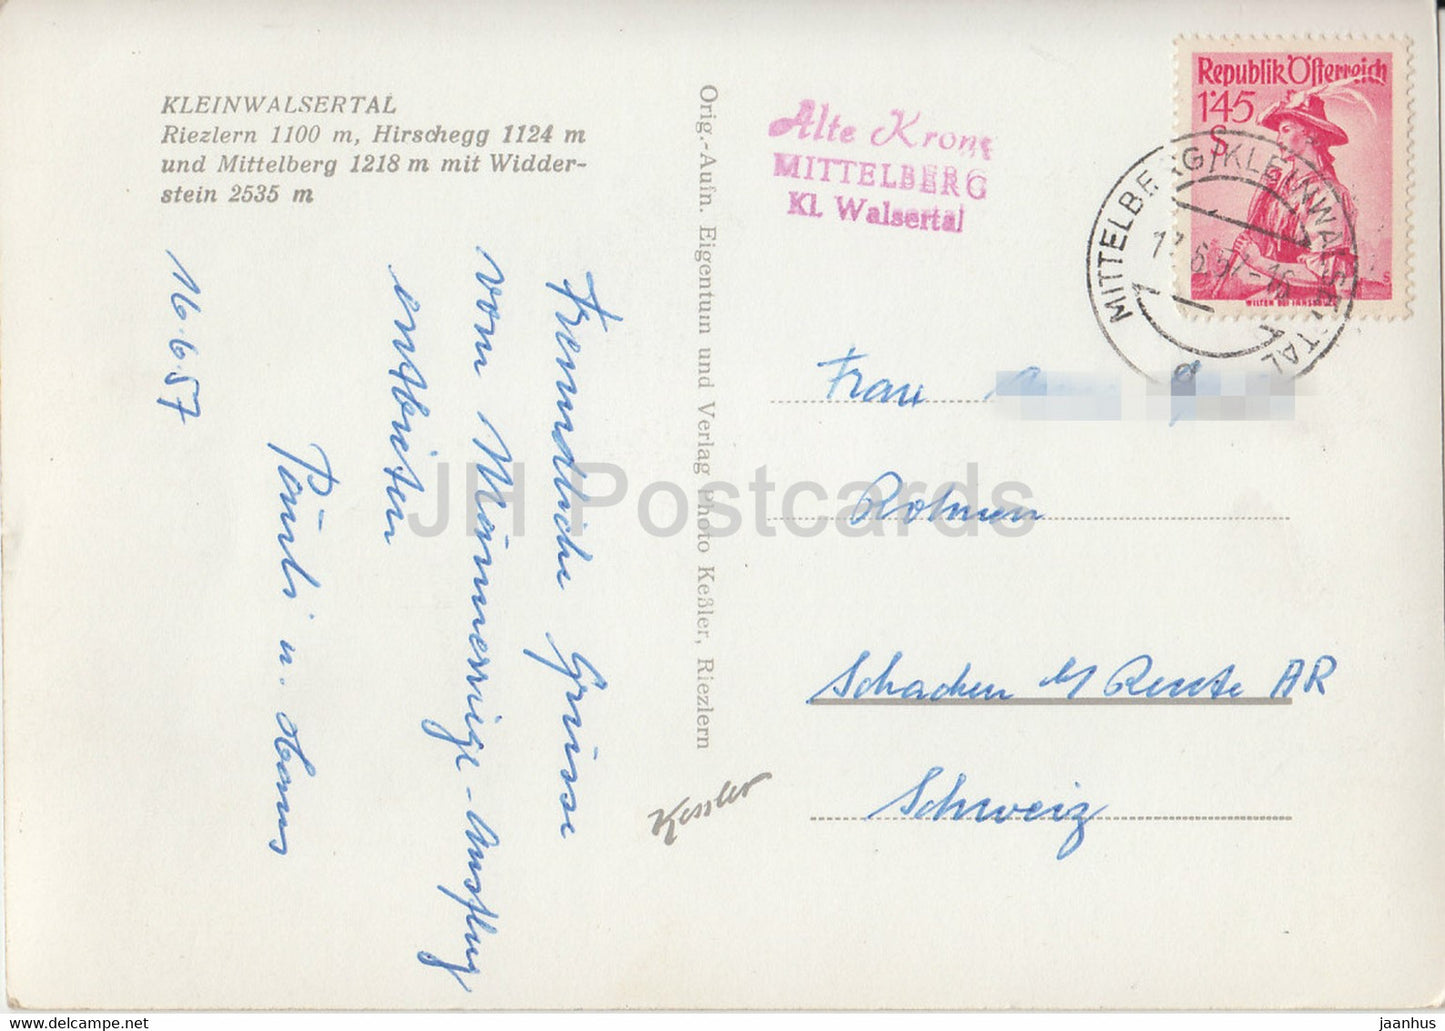 KLEINWALSERTAL
Riezlern 1100 m, Hirschegg 1124 m
und Mittelberg 1218 m mit Widder-
stein 2535 m
16.6.57
Freundliche Grüsse
vom Männerriege-Ausflug
entbieten
u. Hans
Orig.-Aufn. Eigentum und Verlag Photo Keßler, Riezlern
Kessler
Alte Krone
MITTELBERG
Kl. Walsertal
Republik Österreich
1.45
S
WILTEN BEI INNSBRUCK
MITTELBERG/KLEINWALSERTAL
6.57-16
d
Frau
Rohnen
Schachen b/ Reute AR
Schweiz
JH Postcards
delcampe.net
jaanhus